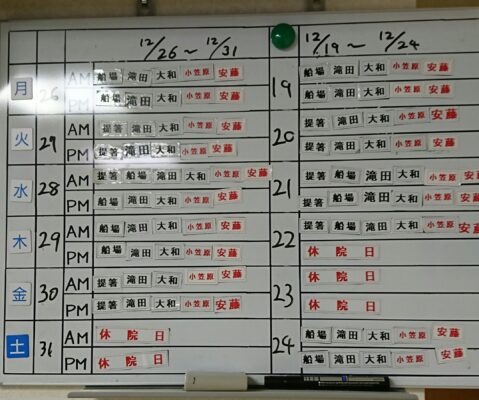 12/26～12/31 12/19～12/24
月 26 AM 船場 滝田 大和 小笠原 安藤 19 船場 滝田 大和 小笠原 安藤
PM 船場 滝田 大和 小笠原 安藤 船場 滝田 大和 小笠原 安藤
火 29 AM 提箸 滝田 大和 小笠原 安藤 20 提箸 滝田 大和 小笠原 安藤
PM 提箸 滝田 大和 小笠原 安藤 提箸 滝田 大和 小笠原 安藤
水 28 AM 提箸 船場 滝田 大和 小笠原 安藤 21 提箸 船場 滝田 大和 小笠原 安藤
PM 船場 滝田 大和 小笠原 安藤 提箸 船場 滝田 大和 小笠原 安藤
木 29 AM 船場 滝田 大和 小笠原 安藤 22 提箸 船場 滝田 大和 小笠原 安藤
PM 船場 滝田 大和 小笠原 安藤 休院日
金 30 AM 提箸 滝田 大和 小笠原 安藤 23 休院日
PM 提箸 滝田 大和 小笠原 安藤 休院日
土 31 AM 休院日 24 船場 滝田 大和 小笠原 安藤
PM 休院日 船場 滝田 大和 小笠原 安藤